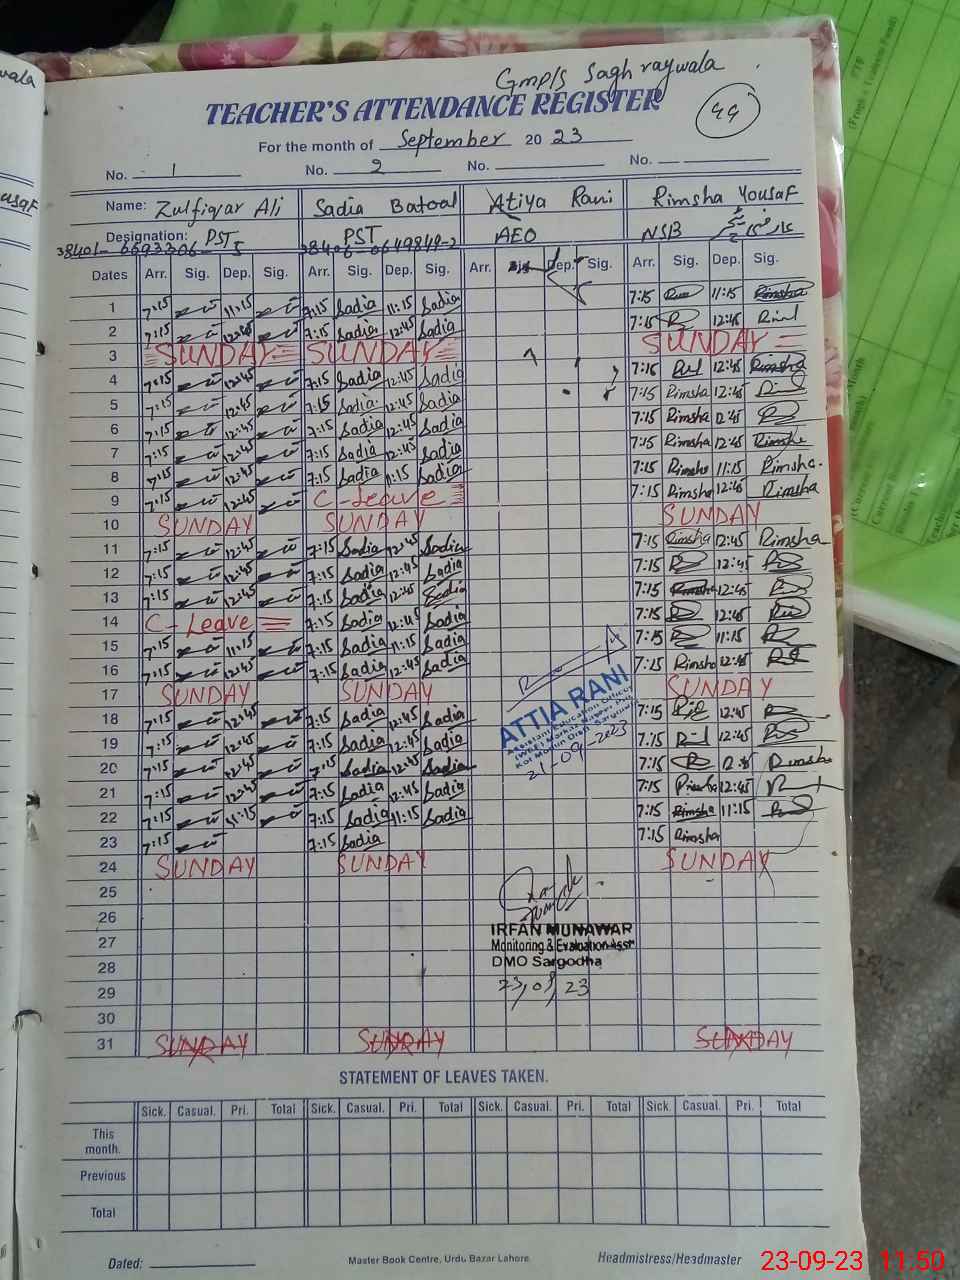 Gmpls Saghraywala
TEACHER'S ATTENDANCE REGISTER
44
For the month of September 20 23
No. 1 No. 2 No. No.
Name: Zulfiqar Ali Sadia Batool Atiya Rani Rimsha Yousaf
Designation: PST PST AEO NSB
38401-6693306-5 38406-0649849-2
Dates Arr. Sig. Dep. Sig. Arr. Sig. Dep. Sig. Arr. Sig. Dep. Sig. Arr. Sig. Dep. Sig.
1 7:15 11:15 7:15 Sadia 11:15 Sadia 7:15 11:15 Rimsha
2 7:15 12:45 7:15 Sadia 12:45 Sadia 7:15 12:45
3 SUNDAY SUNDAY SUNDAY
4 7:15 12:45 7:15 Sadia 12:45 Sadia 7:15 12:45 Rimsha
5 7:15 12:45 7:15 Sadia 12:45 Sadia 7:15 Rimsha 12:45
6 7:15 12:45 7:15 Sadia 12:45 Sadia 7:15 Rimsha 12:45
7 7:15 12:45 7:15 Sadia 12:45 Sadia 7:15 Rimsha 12:45 Rimsha
8 7:15 12:45 7:15 Sadia 11:15 Sadia 7:15 Rimsha 11:15 Rimsha
9 7:15 12:45 C-Leave 7:15 Rimsha 12:45 Rimsha
10 SUNDAY SUNDAY SUNDAY
11 7:15 12:45 7:15 Sadia 12:45 Sadia 7:15 Rimsha 12:45 Rimsha
12 7:15 12:45 7:15 Sadia 12:45 Sadia 7:15 12:45
13 7:15 12:45 7:15 Sadia 12:45 Sadia 7:15 Rimsha 12:45
14 C-Leave 7:15 Sadia 12:45 Sadia 7:15 12:45
15 7:15 11:15 7:15 Sadia 11:15 Sadia 7:15 11:15
16 7:15 12:45 7:15 Sadia 12:45 Sadia 7:15 Rimsha 12:45
17 SUNDAY SUNDAY SUNDAY
18 7:15 12:45 7:15 Sadia 12:45 Sadia 7:15 12:45
19 7:15 12:45 7:15 Sadia 12:45 Sadia 7:15 12:45
20 7:15 12:45 7:15 Sadia 12:45 Sadia 7:15 12:45 Rimsha
21 7:15 12:45 7:15 Sadia 12:45 Sadia 7:15 Rimsha 12:45
22 7:15 11:15 7:15 Sadia 11:15 Sadia 7:15 Rimsha 11:15
23 7:15 7:15 Sadia 7:15 Rimsha
24 SUNDAY SUNDAY SUNDAY
25
26
27
28
29
30
31 SUNDAY SUNDAY SUNDAY
ATTIA RANI
Assistant Education Officer
21-09-2023
IRFAN MUNAWAR
Monitoring & Evaluation Asst
DMO Sargodha
23,09,23
STATEMENT OF LEAVES TAKEN.
Sick. Casual. Pri. Total Sick. Casual. Pri. Total Sick. Casual. Pri. Total Sick. Casual. Pri. Total
This month.
Previous
Total
Dated:
Master Book Centre, Urdu Bazar Lahore.
Headmistress/Headmaster
23-09-23 11:50